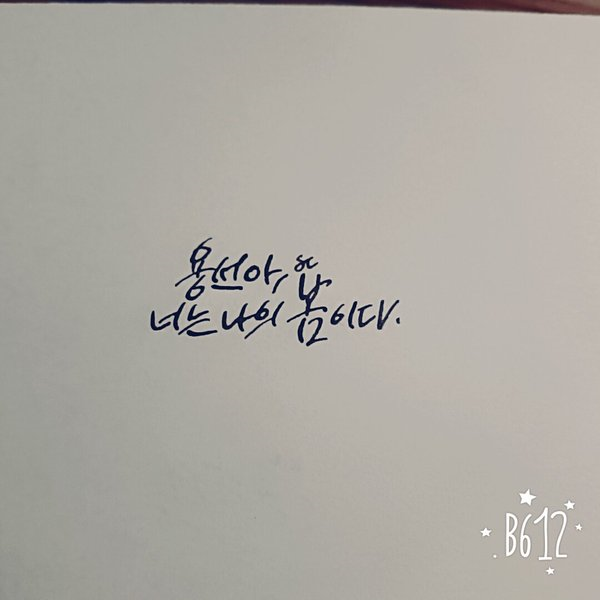 용선아,
너는 나의 봄이다.
B612